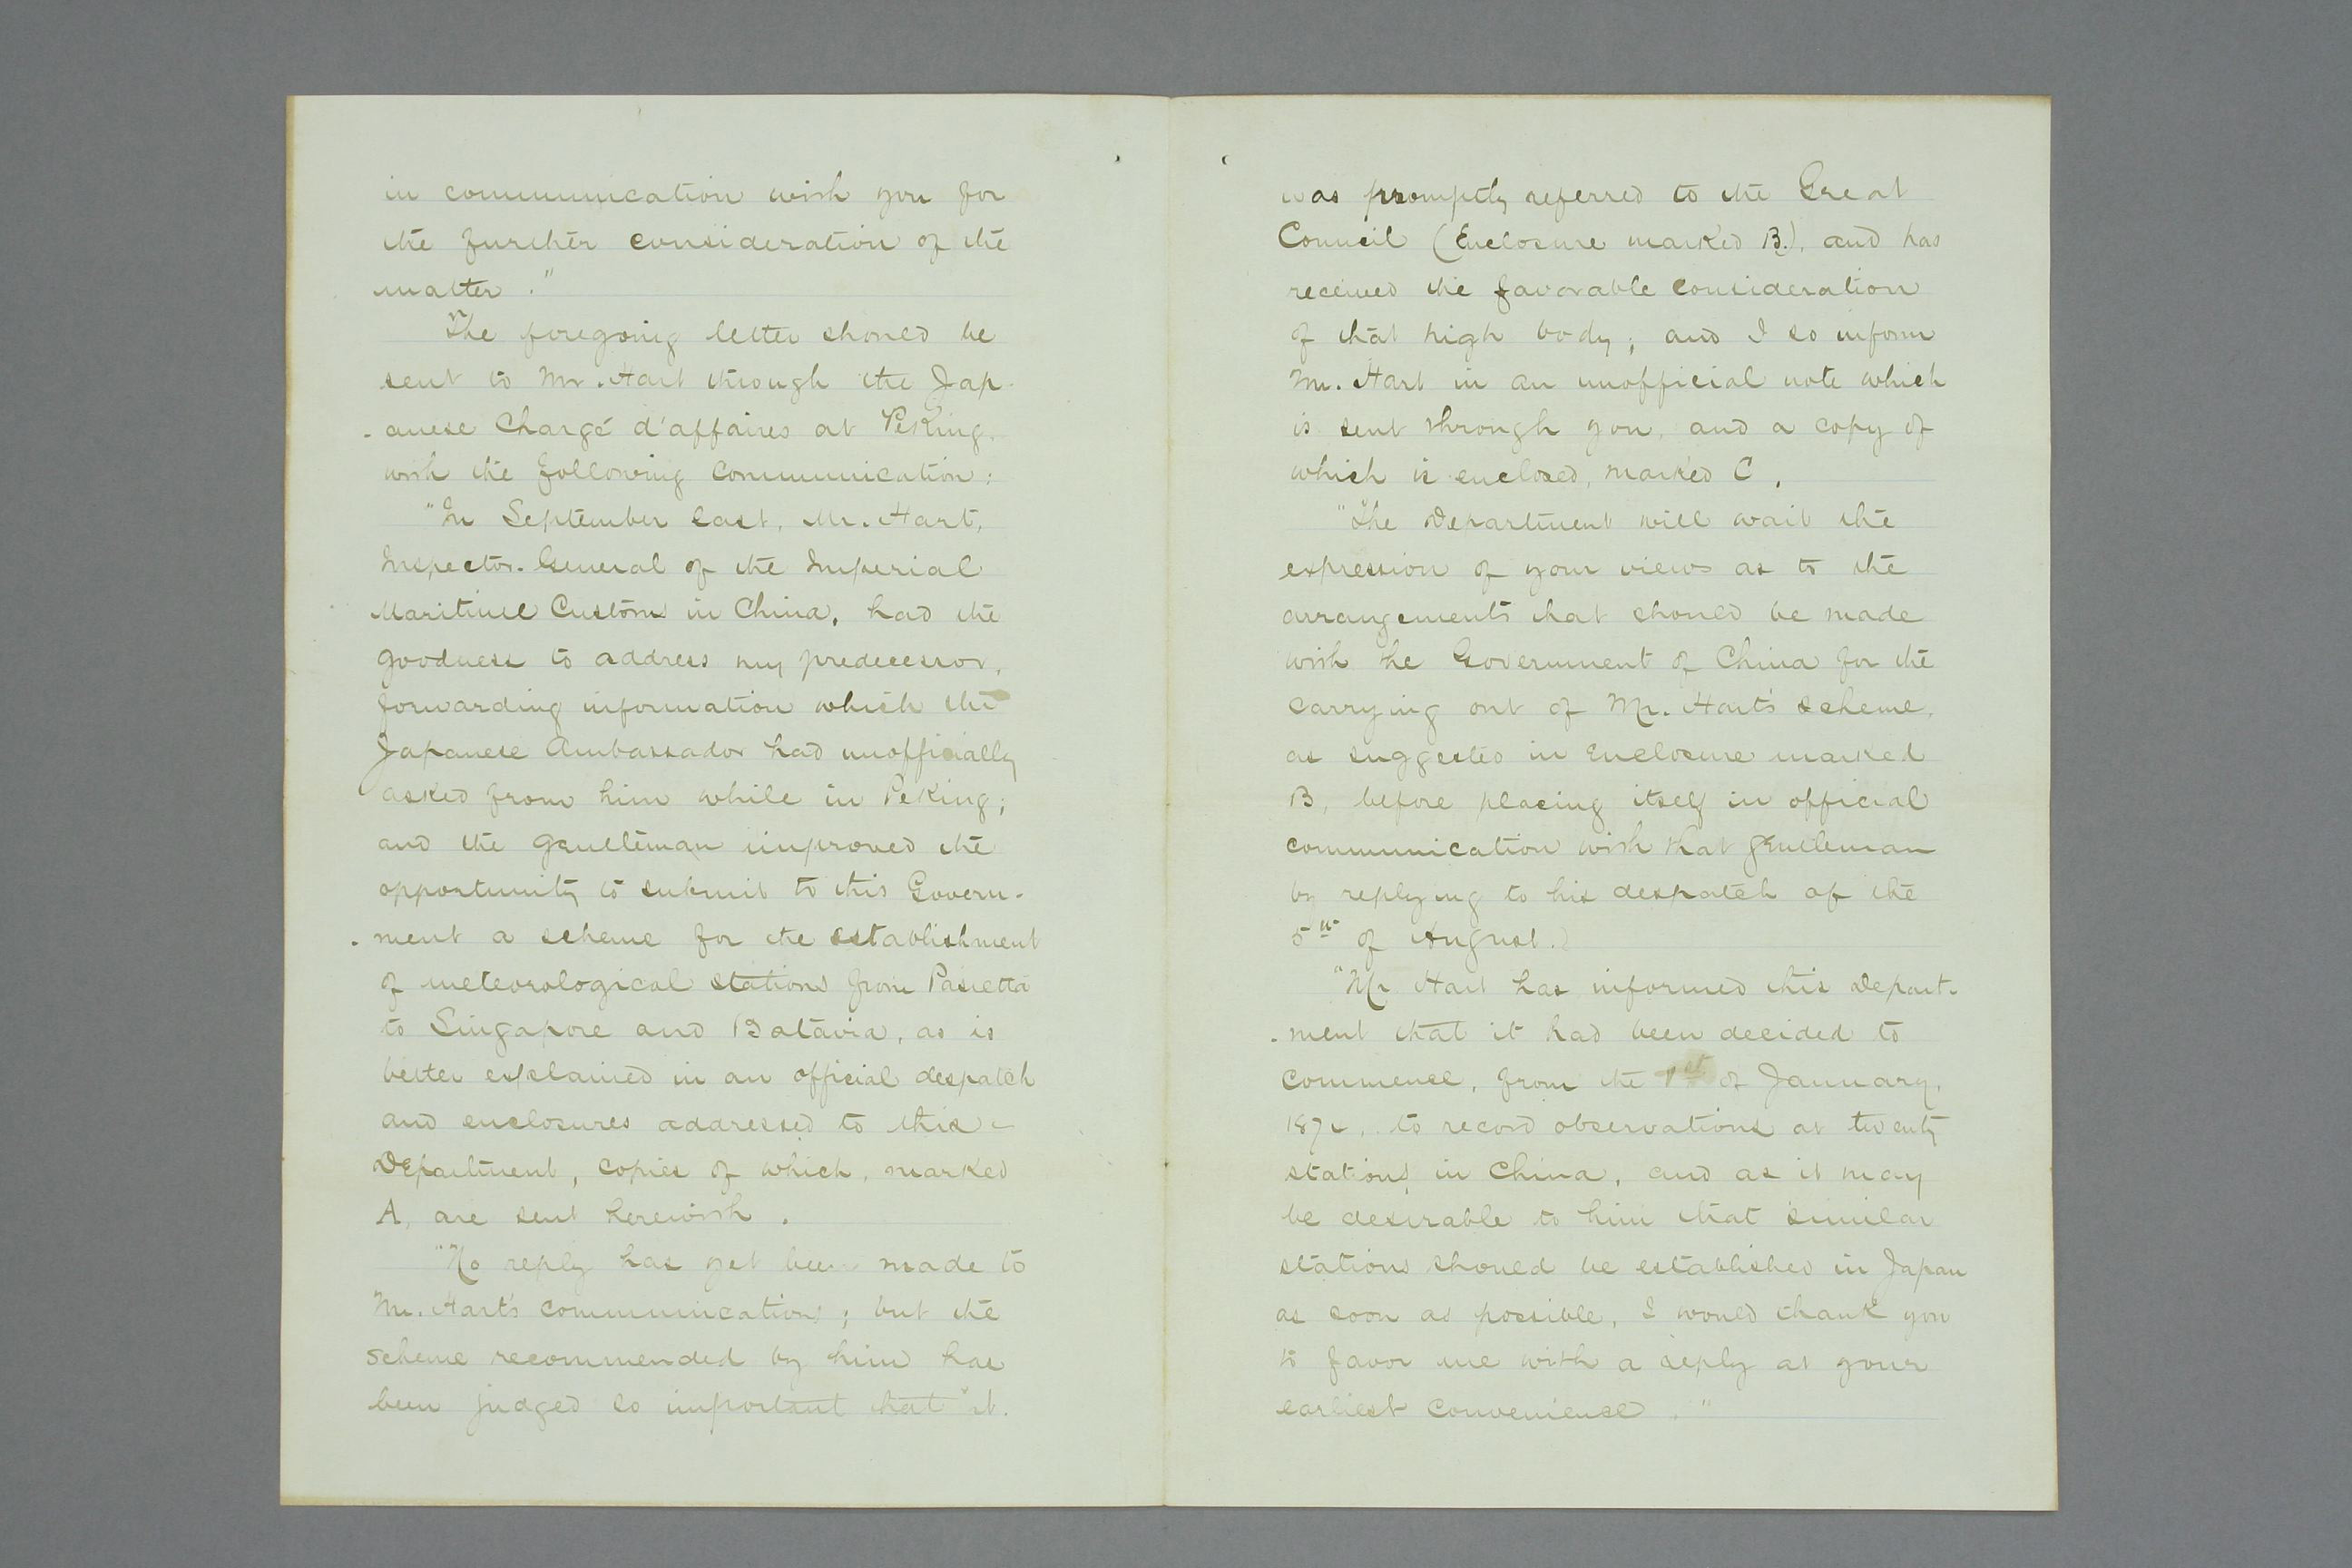 in communication with you for
the further consideration of the
matter."
The foregoing letter should be
sent to Mr. Hart through the Jap-
-anese Chargé d'affaires at Peking,
with the following communication:
"In September last, Mr. Hart,
Inspector-General of the Imperial
Maritime Customs in China, had the
goodness to address my predecessor,
forwarding information which the
Japanese Ambassador had unofficially
asked from him while in Peking;
and the gentleman improved the
opportunity to submit to this Govern-
-ment a scheme for the establishment
of meteorological stations from Passietta
to Singapore and Batavia, as is
better explained in an official despatch
and enclosures addressed to this
Department, copies of which, marked
A, are sent herewith.
"No reply has yet been made to
Mr. Hart's communications; but the
scheme recommended by him has
been judged so important that it
was promptly referred to the Great
Council (Enclosure marked B.), and has
received the favorable consideration
of that high body; and I so inform
Mr. Hart in an unofficial note which
is sent through you, and a copy of
which is enclosed, marked C.
"The Department will wait the
expression of your views as to the
arrangements that should be made
with the Government of China for the
carrying out of Mr. Hart's scheme,
as suggested in Enclosure marked
B, before placing itself in official
communication with that gentleman
by replying to his despatch of the
5th of August.)
"Mr Hart has informed this Depart-
-ment that it had been decided to
commence, from the 1st of January,
to record observations at twenty
stations in China, and as it may
be desirable to him that similar
stations should be established in Japan
as soon as possible, I would thank you
to favor me with a reply at your
earliest convenience."